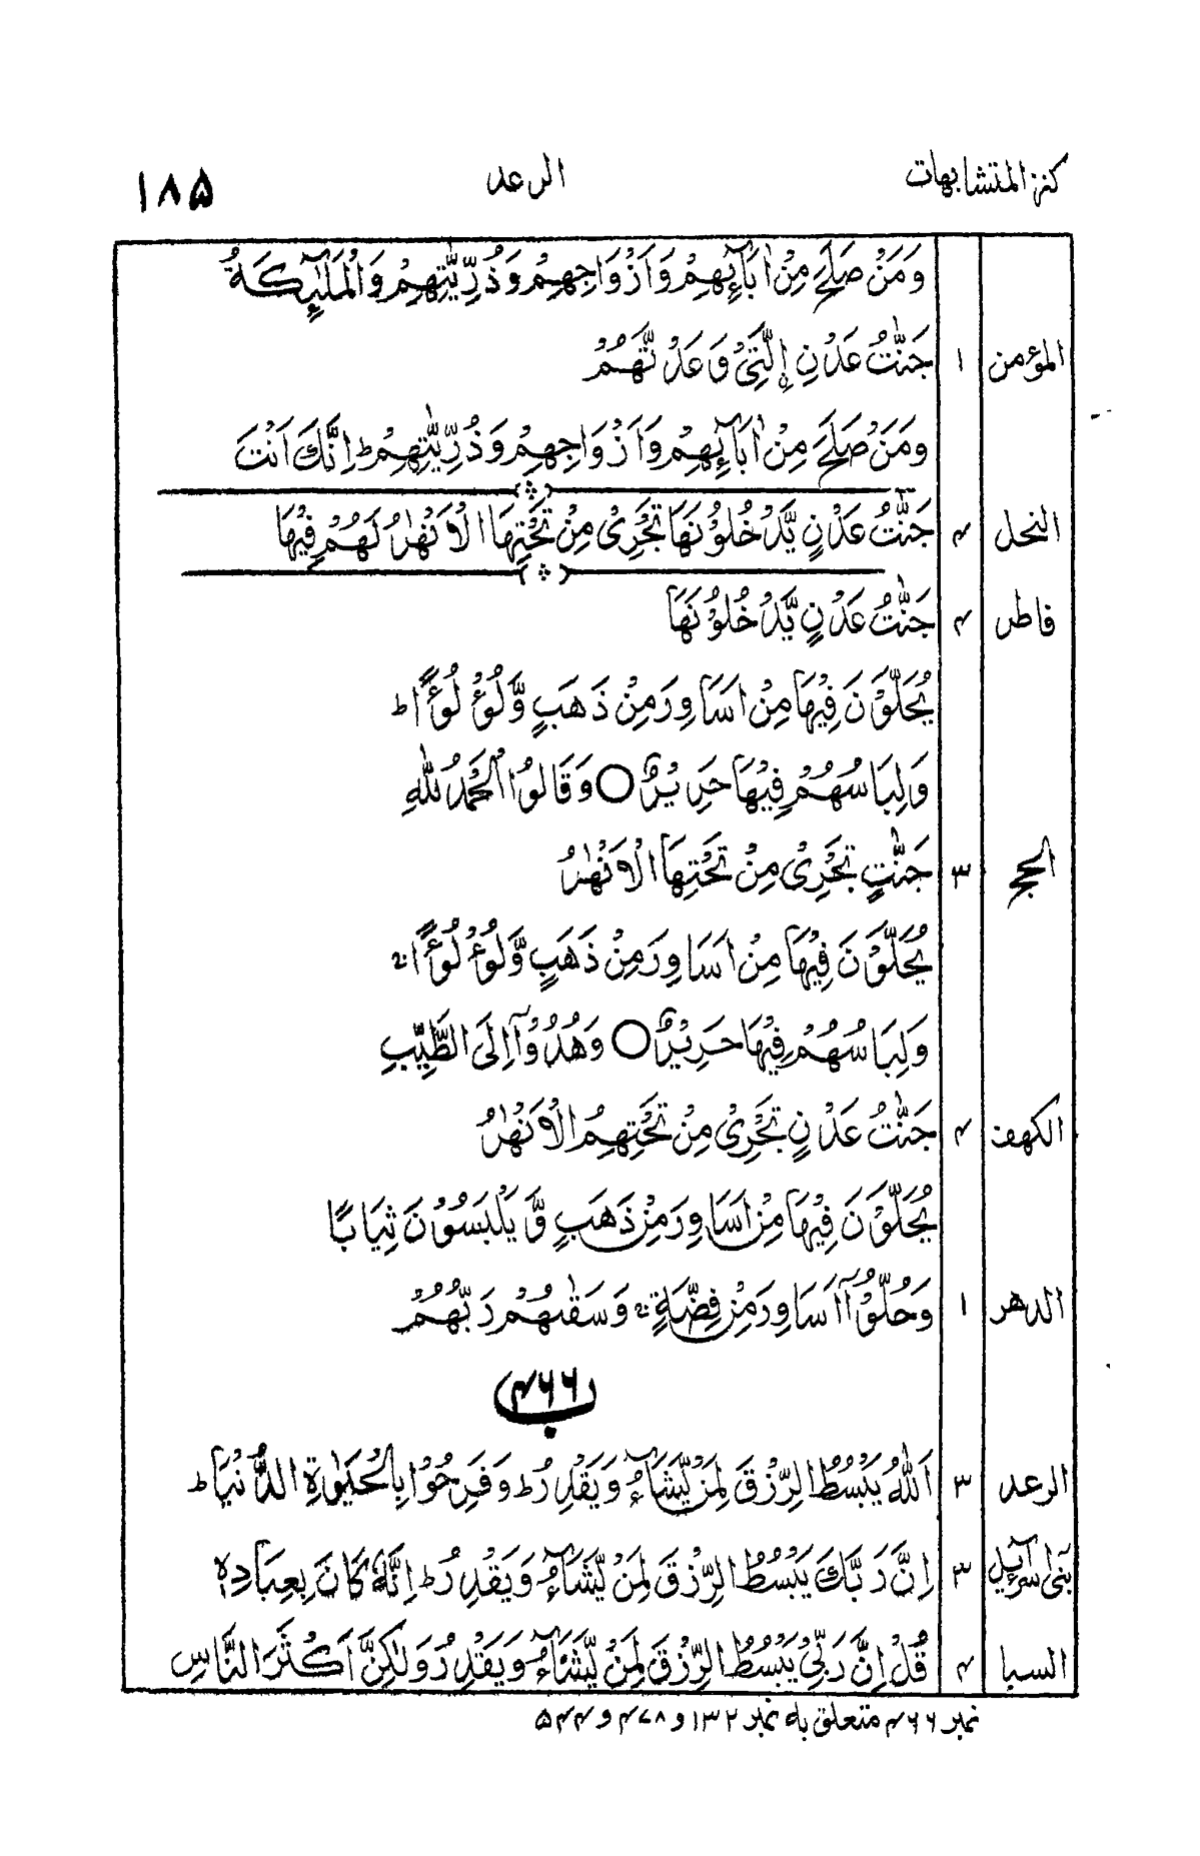 كنز المتشابهات الرعد ۱۸۵
وَمَنْ صَلَحَ مِنْ اٰبَآئِهِمْ وَاَزْوَاجِهِمْ وَذُرِّيّٰتِهِمْ وَالْمَلٰٓئِكَةُ
المؤمن ۱ جَنّٰتُ عَدْنِ اِلَّتِيْ وَعَدْتَّهُمْ
وَمَنْ صَلَحَ مِنْ اٰبَآئِهِمْ وَاَزْوَاجِهِمْ وَذُرِّيّٰتِهِمْ ط اِنَّكَ اَنْتَ
النحل ۴ جَنّٰتُ عَدْنٍ يَّدْخُلُوْنَهَا تَجْرِيْ مِنْ تَحْتِهَا الْاَنْهٰرُ لَهُمْ فِيْهَا
فاطر ۴ جَنّٰتُ عَدْنٍ يَّدْخُلُوْنَهَا
يُحَلَّوْنَ فِيْهَا مِنْ اَسَاوِرَ مِنْ ذَهَبٍ وَّلُؤْلُؤًا ط
وَلِبَاسُهُمْ فِيْهَا حَرِيْرٌ ○ وَقَالُوا الْحَمْدُ لِلّٰهِ
الحج ۳ جَنّٰتٍ تَجْرِيْ مِنْ تَحْتِهَا الْاَنْهٰرُ
يُحَلَّوْنَ فِيْهَا مِنْ اَسَاوِرَ مِنْ ذَهَبٍ وَّلُؤْلُؤًا
وَلِبَاسُهُمْ فِيْهَا حَرِيْرٌ ○ وَهُدُوْٓا اِلَى الطَّيِّبِ
الكهف ۴ جَنّٰتُ عَدْنٍ تَجْرِيْ مِنْ تَحْتِهِمُ الْاَنْهٰرُ
يُحَلَّوْنَ فِيْهَا مِنْ اَسَاوِرَ مِنْ ذَهَبٍ وَّ يَلْبَسُوْنَ ثِيَابًا
الدهر ۱ وَحُلُّوْٓا اَسَاوِرَ مِنْ فِضَّةٍ وَسَقٰهُمْ رَبُّهُمْ
۴۶۶
الرعد ۳ اَللّٰهُ يَبْسُطُ الرِّزْقَ لِمَنْ يَّشَآءُ وَيَقْدِرُ ط وَفَرِحُوْا بِالْحَيٰوةِ الدُّنْيَا ط
بنی اسرآئیل ۳ اِنَّ رَبَّكَ يَبْسُطُ الرِّزْقَ لِمَنْ يَّشَآءُ وَيَقْدِرُ ط اِنَّهٗ كَانَ بِعِبَادِهٖ
السبا ۴ قُلْ اِنَّ رَبِّيْ يَبْسُطُ الرِّزْقَ لِمَنْ يَّشَآءُ وَيَقْدِرُ وَلٰكِنَّ اَكْثَرَ النَّاسِ
نمبر ۴۶۶ متعلق بہ نمبر ۱۳۲ و ۴۷۸ و ۵۴۴